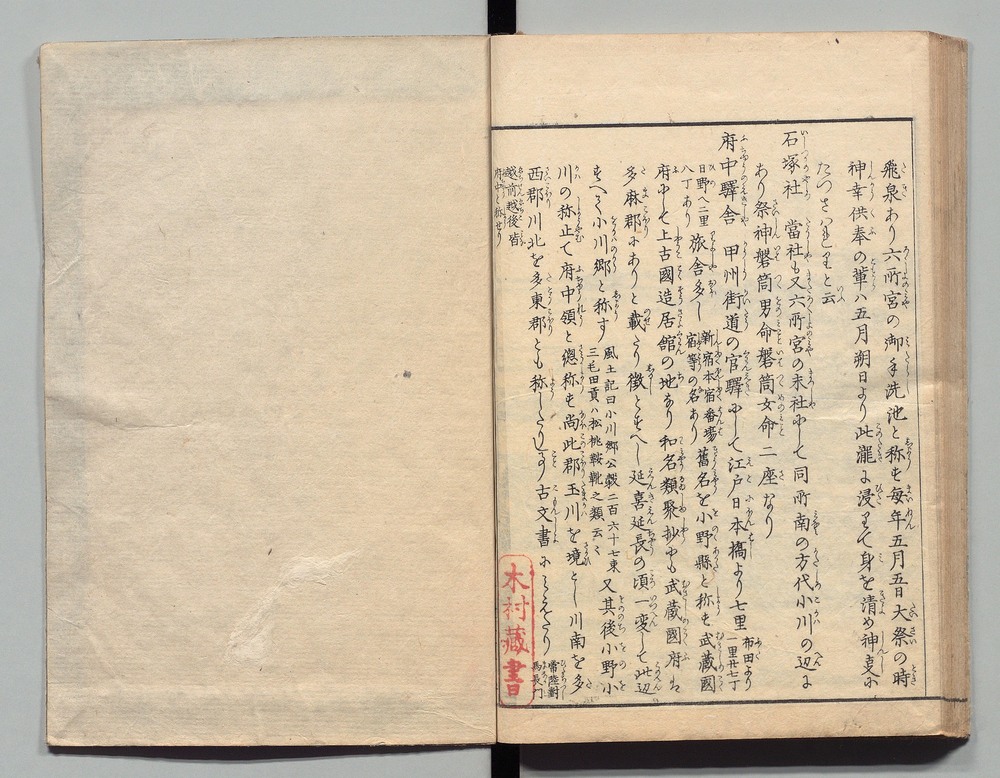 飛泉あり六所宮の御手洗池と称す毎年五月五日大祭の時
神幸供奉の輩ハ五月朔日より此瀧に浸りて身を清め神事に
たつさハるりと云
石塚社　當社も又六所宮の末社にして同所南の方代小川の辺に
あり祭神磐筒男命磐筒女命二座なり
府中驛舎　甲州街道の官驛にして江戸日本橋より七里
布田より
一里廿七丁
日野へ二里
八丁あり
旅舎多し
新宿本宿番場
宿等の名あり
舊名を小野縣と称す武蔵國
府にて上古國造居館の地なり和名類聚抄にも武蔵國府は
多麻郡にありと載たり徴とすへし延喜延長の頃一変して此辺
すへて小川郷と称す
風土記曰小川郷公穀二百六十七束
三毛田貢ハ松桃鞍靴之類云々
又其後小野小
川の称止て府中領と總称す尚此郡玉川を境とし川南を多
西郡川北を多東郡とも称したりし古文書にみえたり
常陸對
馬長门
越前越後皆
府中と称せり
木村藏書